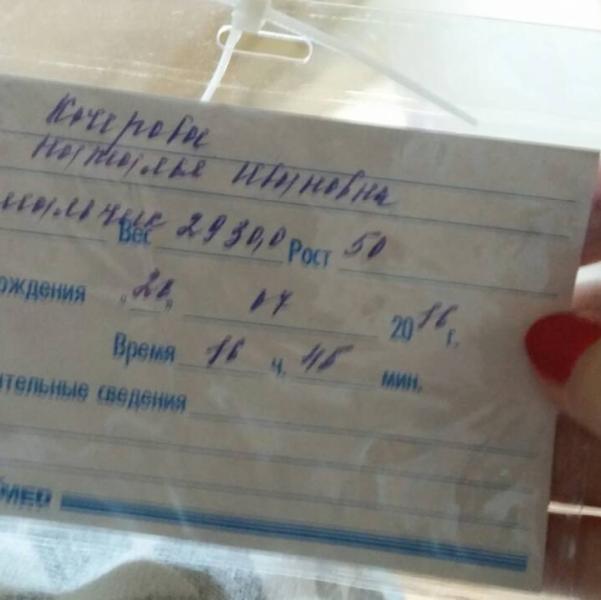 Кочерова
Наталья Ивановна
мальчик Вес 2930,0 Рост 50
ождения „ “ 07 2016 г.
Время 16 ч. 45 мин.
ительные сведения
MED